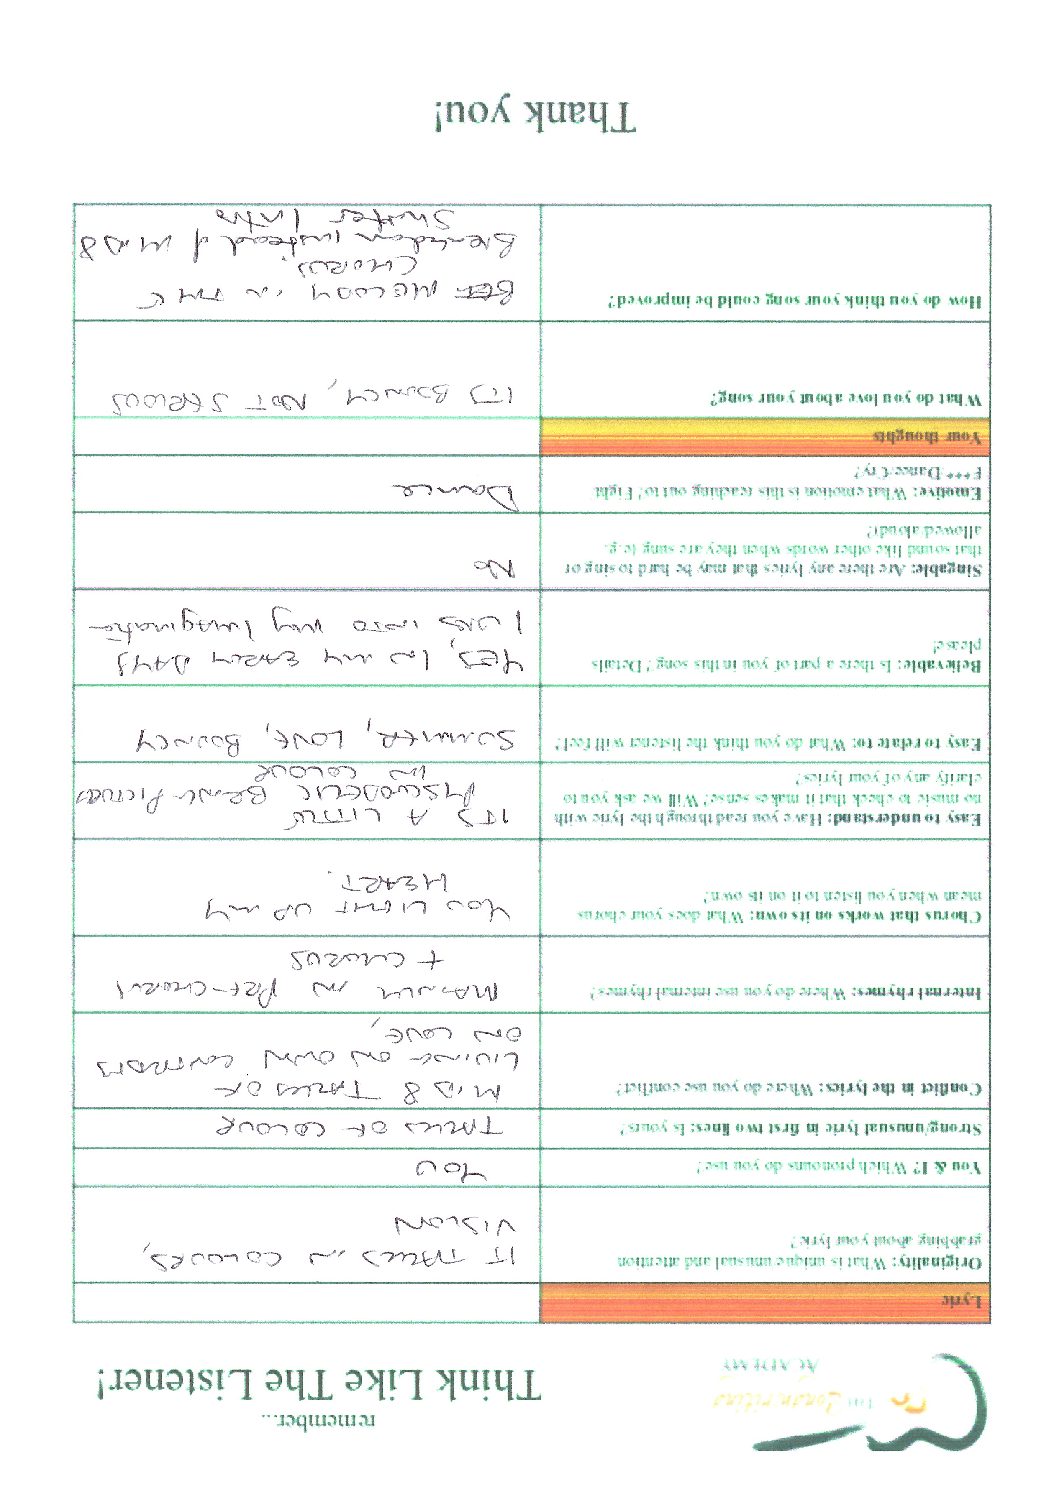 The Songwriting
ACADEMY
remember...
Think Like The Listener!
Lyric
Originality: What is unique unusual and attention
grabbing about your lyric?
IT TALKS IN COLOURS,
VISION
You & I? Which pronouns do you use?
YOU
Strong/unusual lyric in first two lines: Is yours?
TALKS OF COLOUR
Conflict in the lyrics: Where do you use conflict?
MID 8 TALKS OF
LIVING ON OWN CONTRASTS
ON LOVE,
Internal rhymes: Where do you use internal rhymes?
MAINLY IN PRE-CHORUS
+ CHORUS
Chorus that works on its own: What does your chorus
mean when you listen to it on its own?
YOU LIGHT UP MY
HEART.
Easy to understand: Have you read through the lyric with
no music to check that it makes sense? Will we ask you to
clarify any of your lyrics?
ITS A LITTLE
PSYCODELIC BEING PICTURED
IN COLOUR
Easy to relate to: What do you think the listener will feel?
SUMMER, LOVE, BOUNCY
Believable: Is there a part of you in this song? Details
please!
YES, IN MY EARLY DAYS
I WAS INTO my Imagination
Singable: Are there any lyrics that may be hard to sing or
that sound like other words when they are sung (e.g.
allowed/aloud)?
No
Emotive: What emotion is this reaching out to? Fight
F*** Dance/Cry?
Dance
Your thoughts
What do you love about your song?
ITS BOUNCY, NOT SERIOUS
How do you think your song could be improved?
MELODY IN THE
CHORUS.
Breakdown instead of MID 8
Shorter Intro
Thank you!